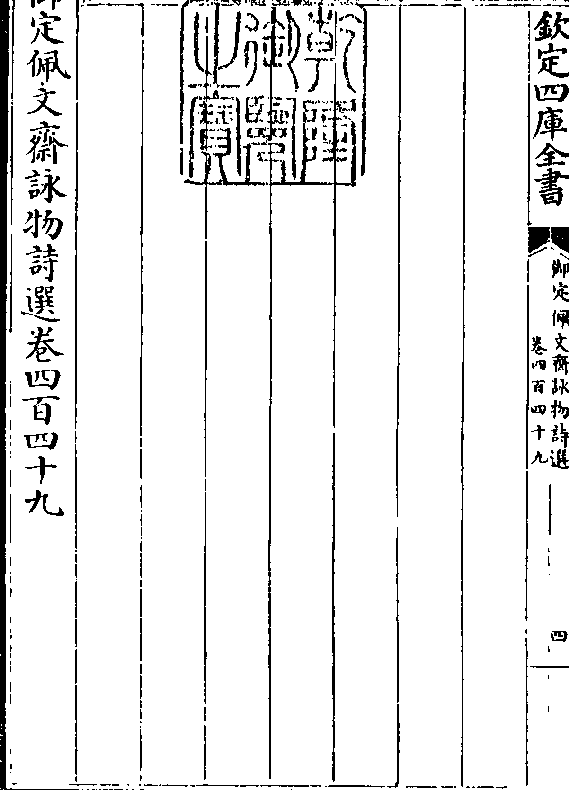 欽定四庫全書
御定佩文齋詠物詩選
卷四百四十九
四
乾隆
御覽
之寶
御定佩文齋詠物詩選卷四百四十九